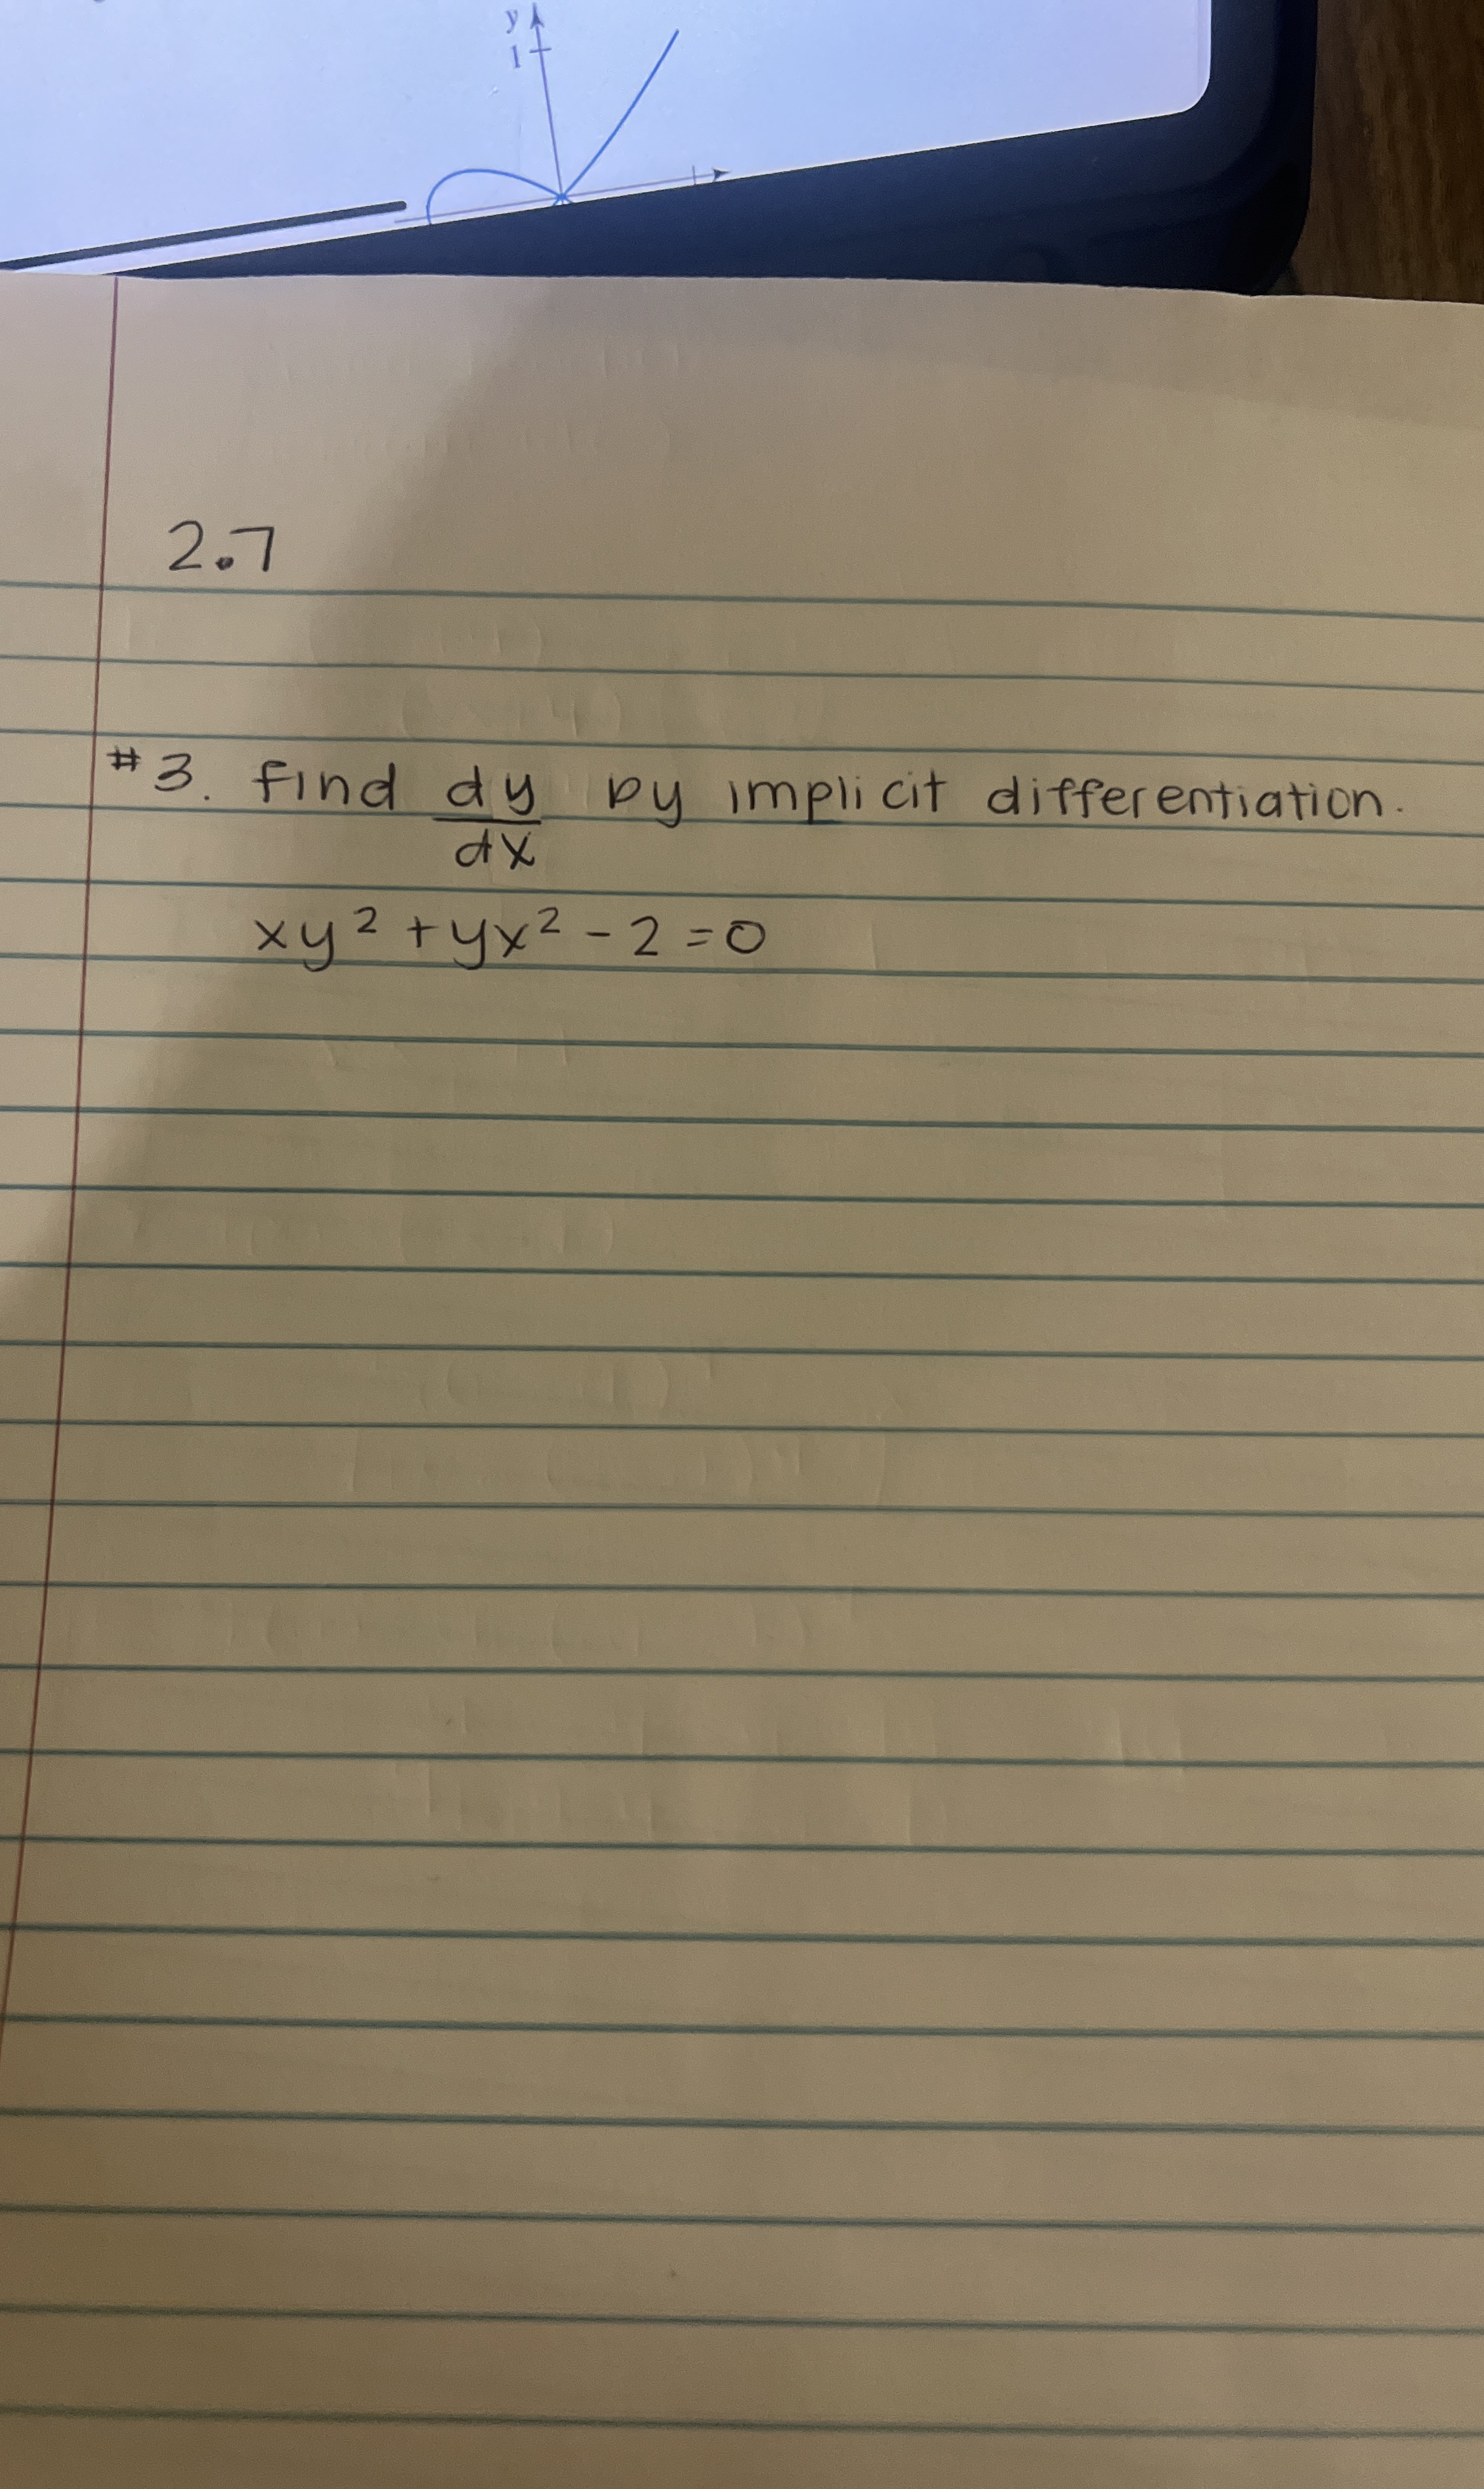 y
1
2.7
#3. find dy/dx by implicit differentiation.
xy² + yx² - 2 = 0